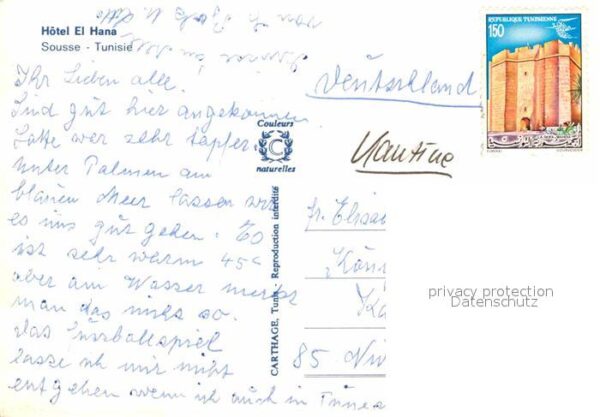 Hôtel El Hana
Sousse - Tunisie
Ihr Lieben alle.
Sind gut hier angekommen
wer sehr tapfer.
Unter Palmen am
blauen Meer lassen wir
es uns gut gehen. Es
ist sehr warm 45°
aber am Wasser merkt
man das nicht so.
das Fussballspiel
lasse ich mir nicht
entgehen wenn ich auch in Tunes
Couleurs
C
naturelles
CARTHAGE, Tunis - Reproduction interdite
REPUBLIQUE TUNISIENNE
150
Deutschland
Kantine
fr. Elisa
König
Ka
85. Nür
privacy protection
Datenschutz